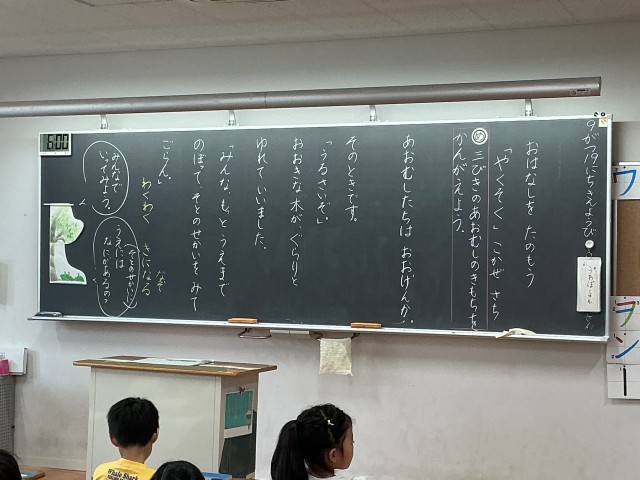 9がつ19にちきんようび
おはなしを たのもう
「やくそく」 こかぜ さち
め 三びきのあおむしのきもちを
かんがえよう。
あおむしたちは おおげんか。
そのときです。
「うるさいぞ。」
おおきな木が、ぐらりと
ゆれていいました。
「みんな、もっとうえまで
のぼって、そとのせかいを みて
ごらん。」
わくわく きになる なぞ
みんなで
いってみよう。
(そとのせかい)
うえには
なにがあるの?
6:00
ワ
ヲ
ン
ー
Whale Shark